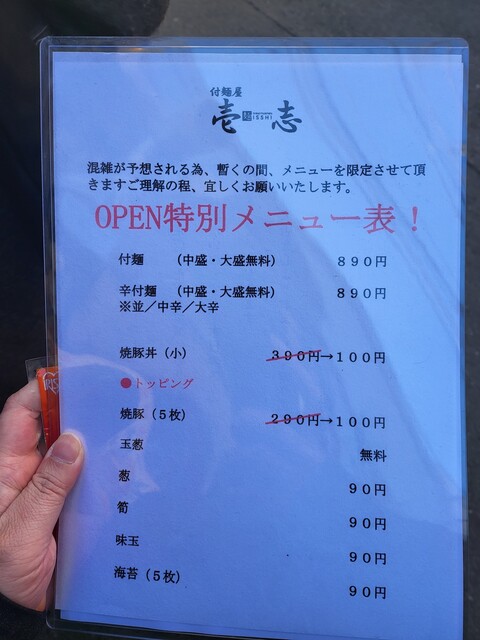 付麺屋
壱 ISSHI 志
混雑が予想される為、暫くの間、メニューを限定させて頂
きますご理解の程、宜しくお願いいたします。
OPEN特別メニュー表！
付麺 （中盛・大盛無料） ８９０円
辛付麺 （中盛・大盛無料） ８９０円
※並／中辛／大辛
焼豚丼（小） ３９０円→１００円
●トッピング
焼豚（５枚） ２９０円→１００円
玉葱 無料
葱 ９０円
筍 ９０円
味玉 ９０円
海苔（５枚） ９０円